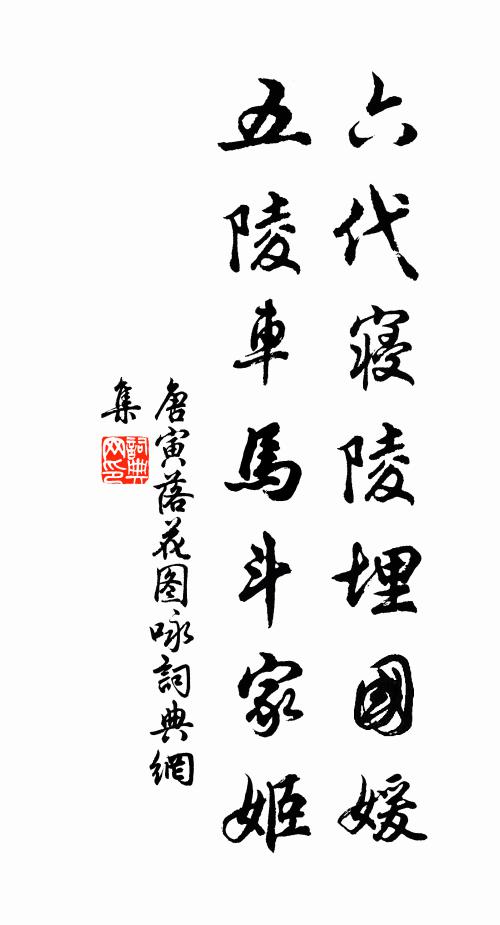 六代寝陵埋國媛
五陵車馬斗家姬
唐寅落花图咏詞典網
集
詞典
网印